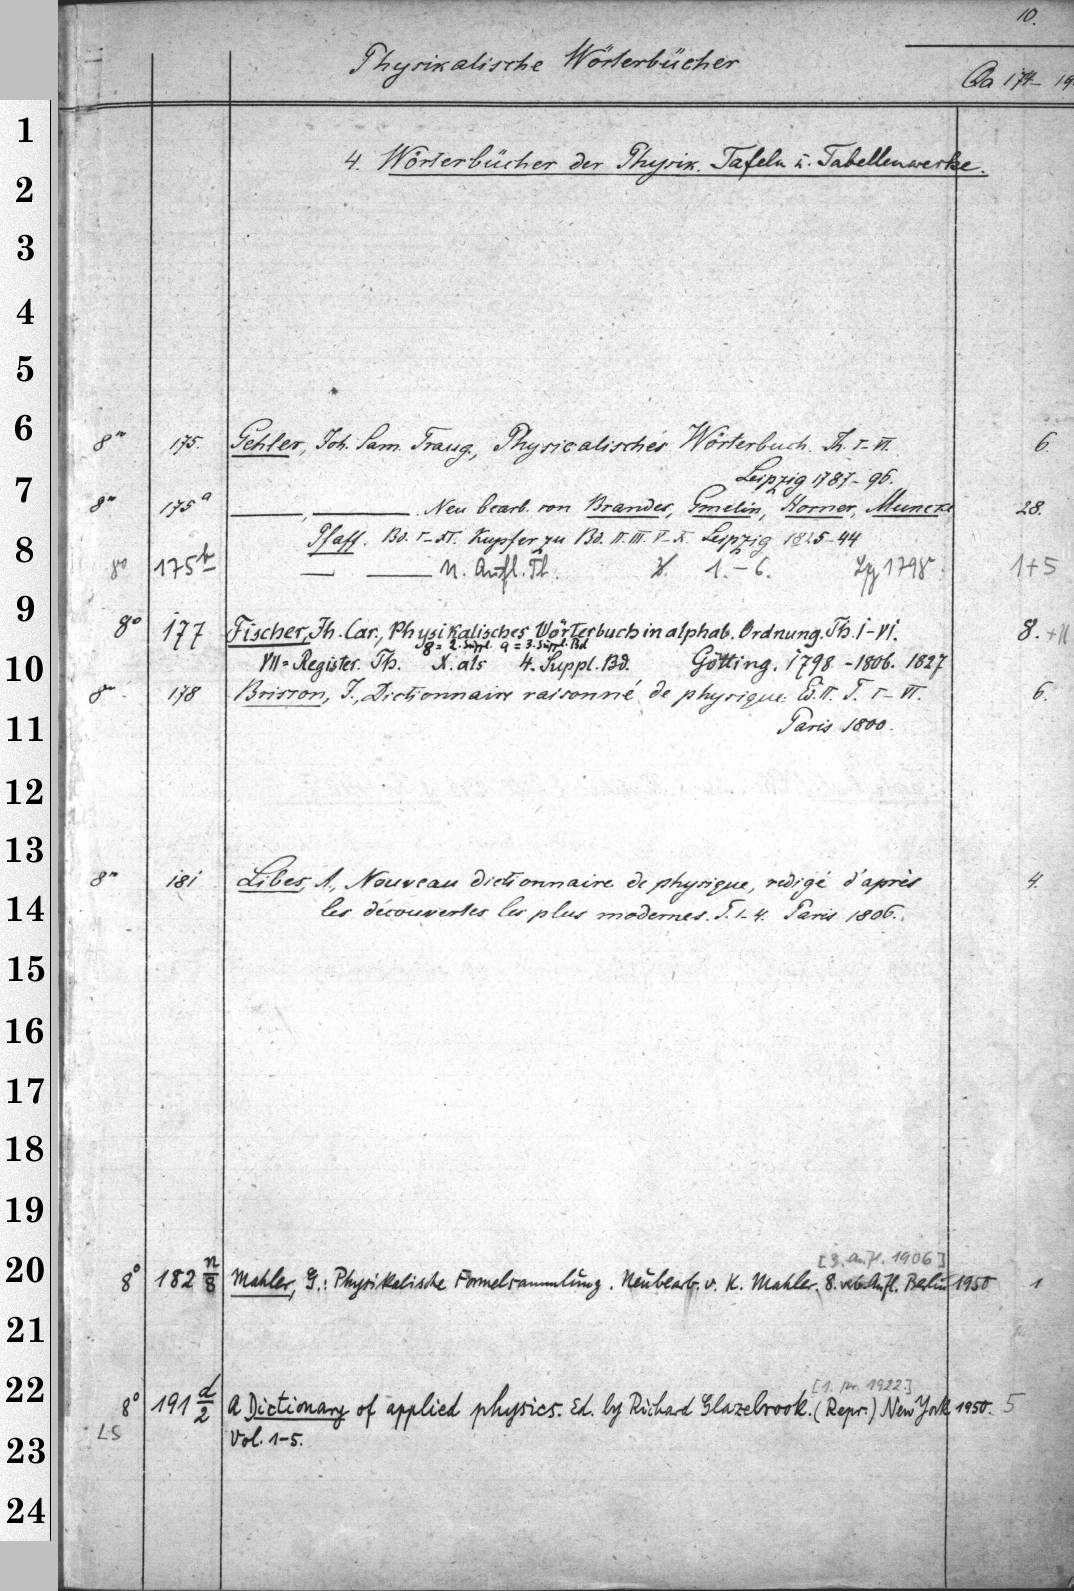 10.
Physikalische Wörterbücher
Qa 174- 19
1
4. Wörterbücher der Physik. Tafeln u. Tabellenwerke.
2
3
4
5
6
8° 175. Gehler, Joh. Sam. Traug., Physicalisches Wörterbuch. Th. I-VI. 6.
7
Leipzig 1787-96.
8° 175a ———, ——— Neu bearb. von Brandes, Gmelin, Horner, Muncke 28.
8
Pfaff. Bd. I-XI. Kupfer zu Bd. II. III. V-X. Leipzig 1825-44
8° 175b — —— N. Aufl. Th. 1.-6. Lpg 1798. 1+5
9
8° 177 Fischer, Jh. Car., Physikalisches Wörterbuch in alphab. Ordnung. Th. I-VI. 8.
8 = 2. Suppl. 9 = 3. Suppl. Bd
10
VII = Register. Th. X. als 4. Suppl. Bd. Götting. 1798-1806. 1827
8° 178 Brisson, J., Dictionnaire raisonné de physique. Ed. II. T. I-VI. 6.
11
Paris 1800.
12
13
8° 181 Libes, A., Nouveau dictionnaire de physique, redigé d'après 4.
14
les découvertes les plus modernes. T. 1-4. Paris 1806.
15
16
17
18
19
[3. Aufl. 1906]
20
8° 182 n/8 Mahler, G.: Physikalische Formelsammlung. Neubearb. v. K. Mahler. 8. verb. Aufl. Berlin 1950 1
21
22
[1. pr. 1922]
8° 191 d/2 A Dictionary of applied physics. Ed. by Richard Glazebrook. (Repr.) New York 1950. 5
LS
23
Vol. 1-5.
24